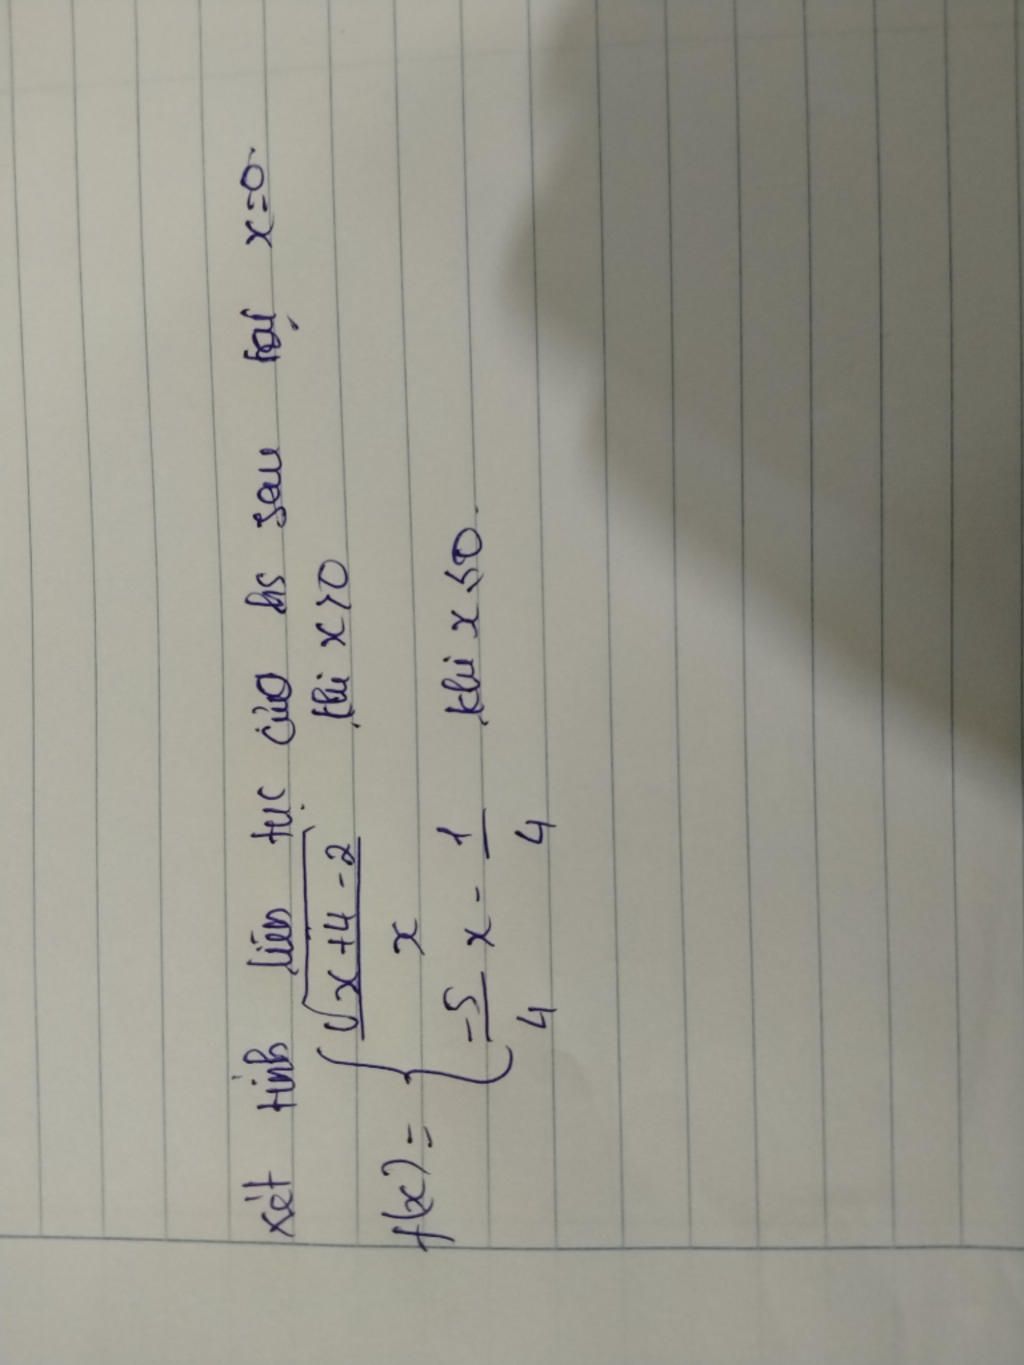 xét tính liên tục của hs sau tại x=0.
f(x) = { (√(x+4) - 2)/x khi x>0
-5/4 x - 1/4 khi x≤0.